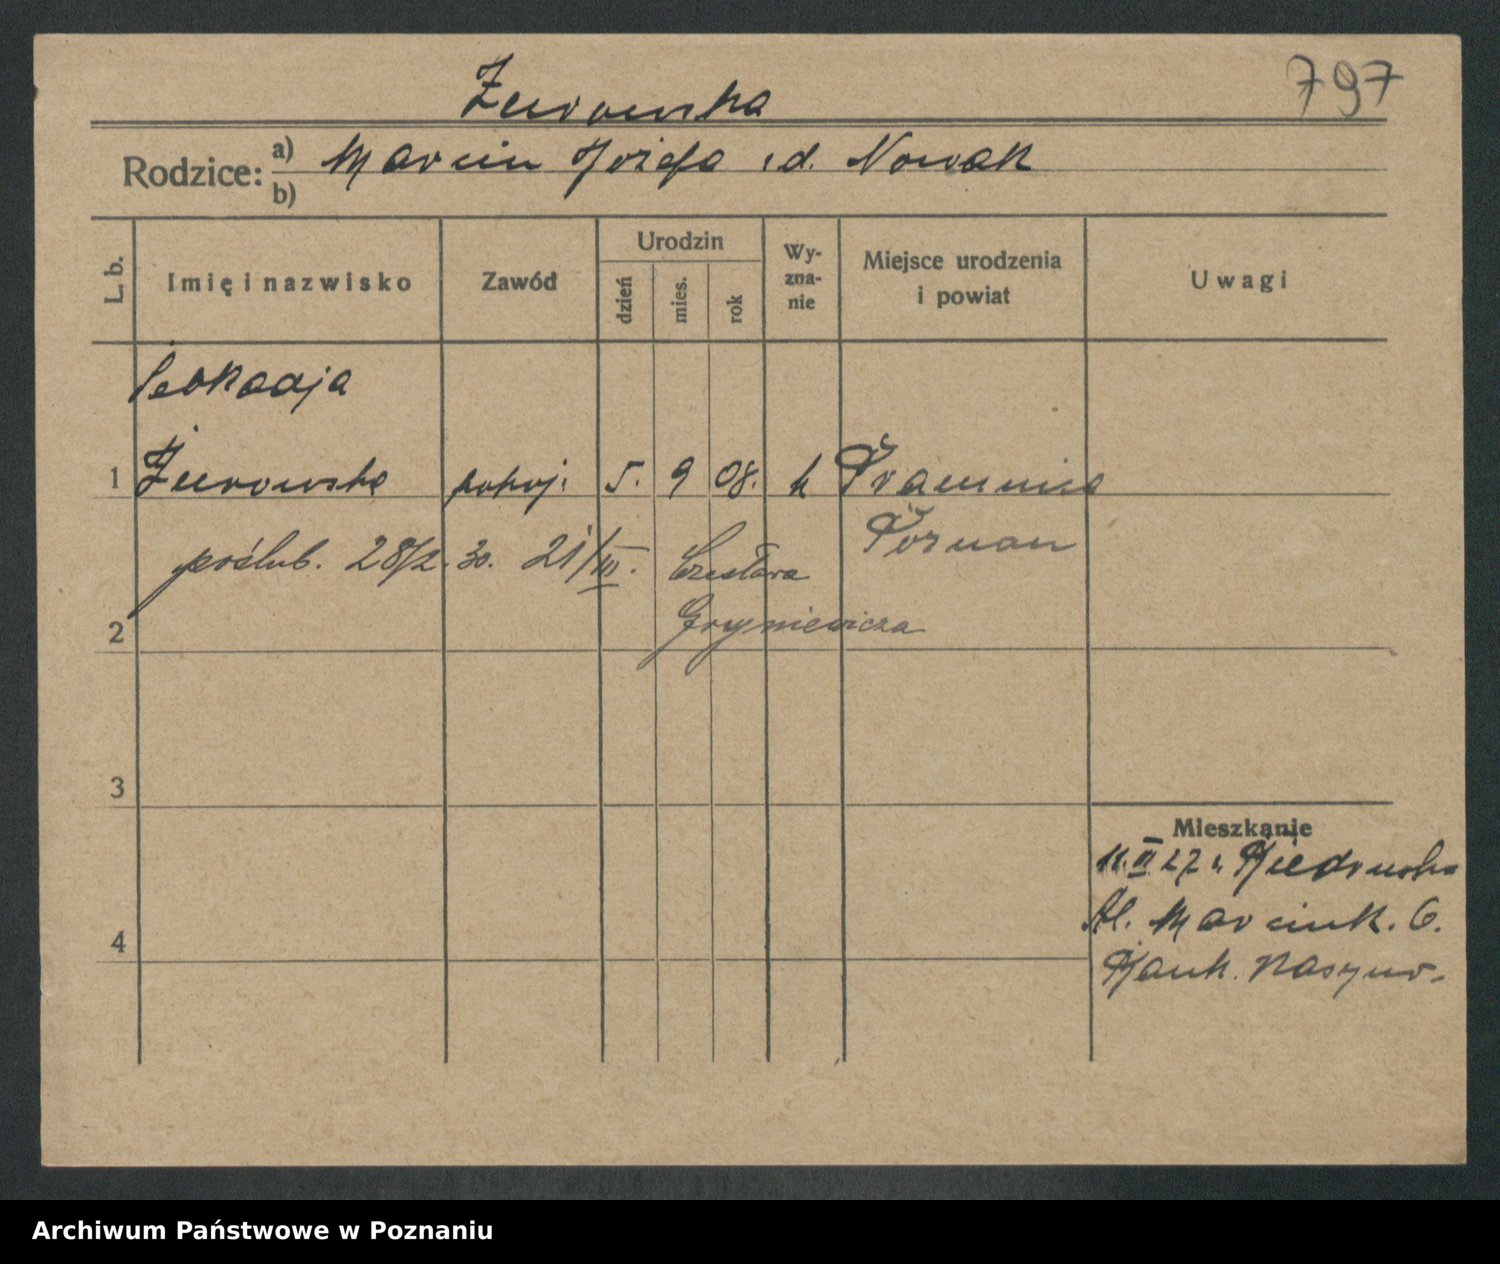 Żurowska
797
Rodzice: a) Marcin Józefa i d. Nowak
b)
L. b.
Imię i nazwisko
Zawód
Urodzin
dzień
mies.
rok
Wy-
zna-
nie
Miejsce urodzenia
i powiat
Uwagi
Leokadja
1 Żurowska pokoj. 5. 9 08. k
Poznań
poślub. 28/2. 30. 21/III. Czesława
Gryniewicza
2
3
4
Mieszkanie
27
Al. Marcink. 6.
Archiwum Państwowe w Poznaniu